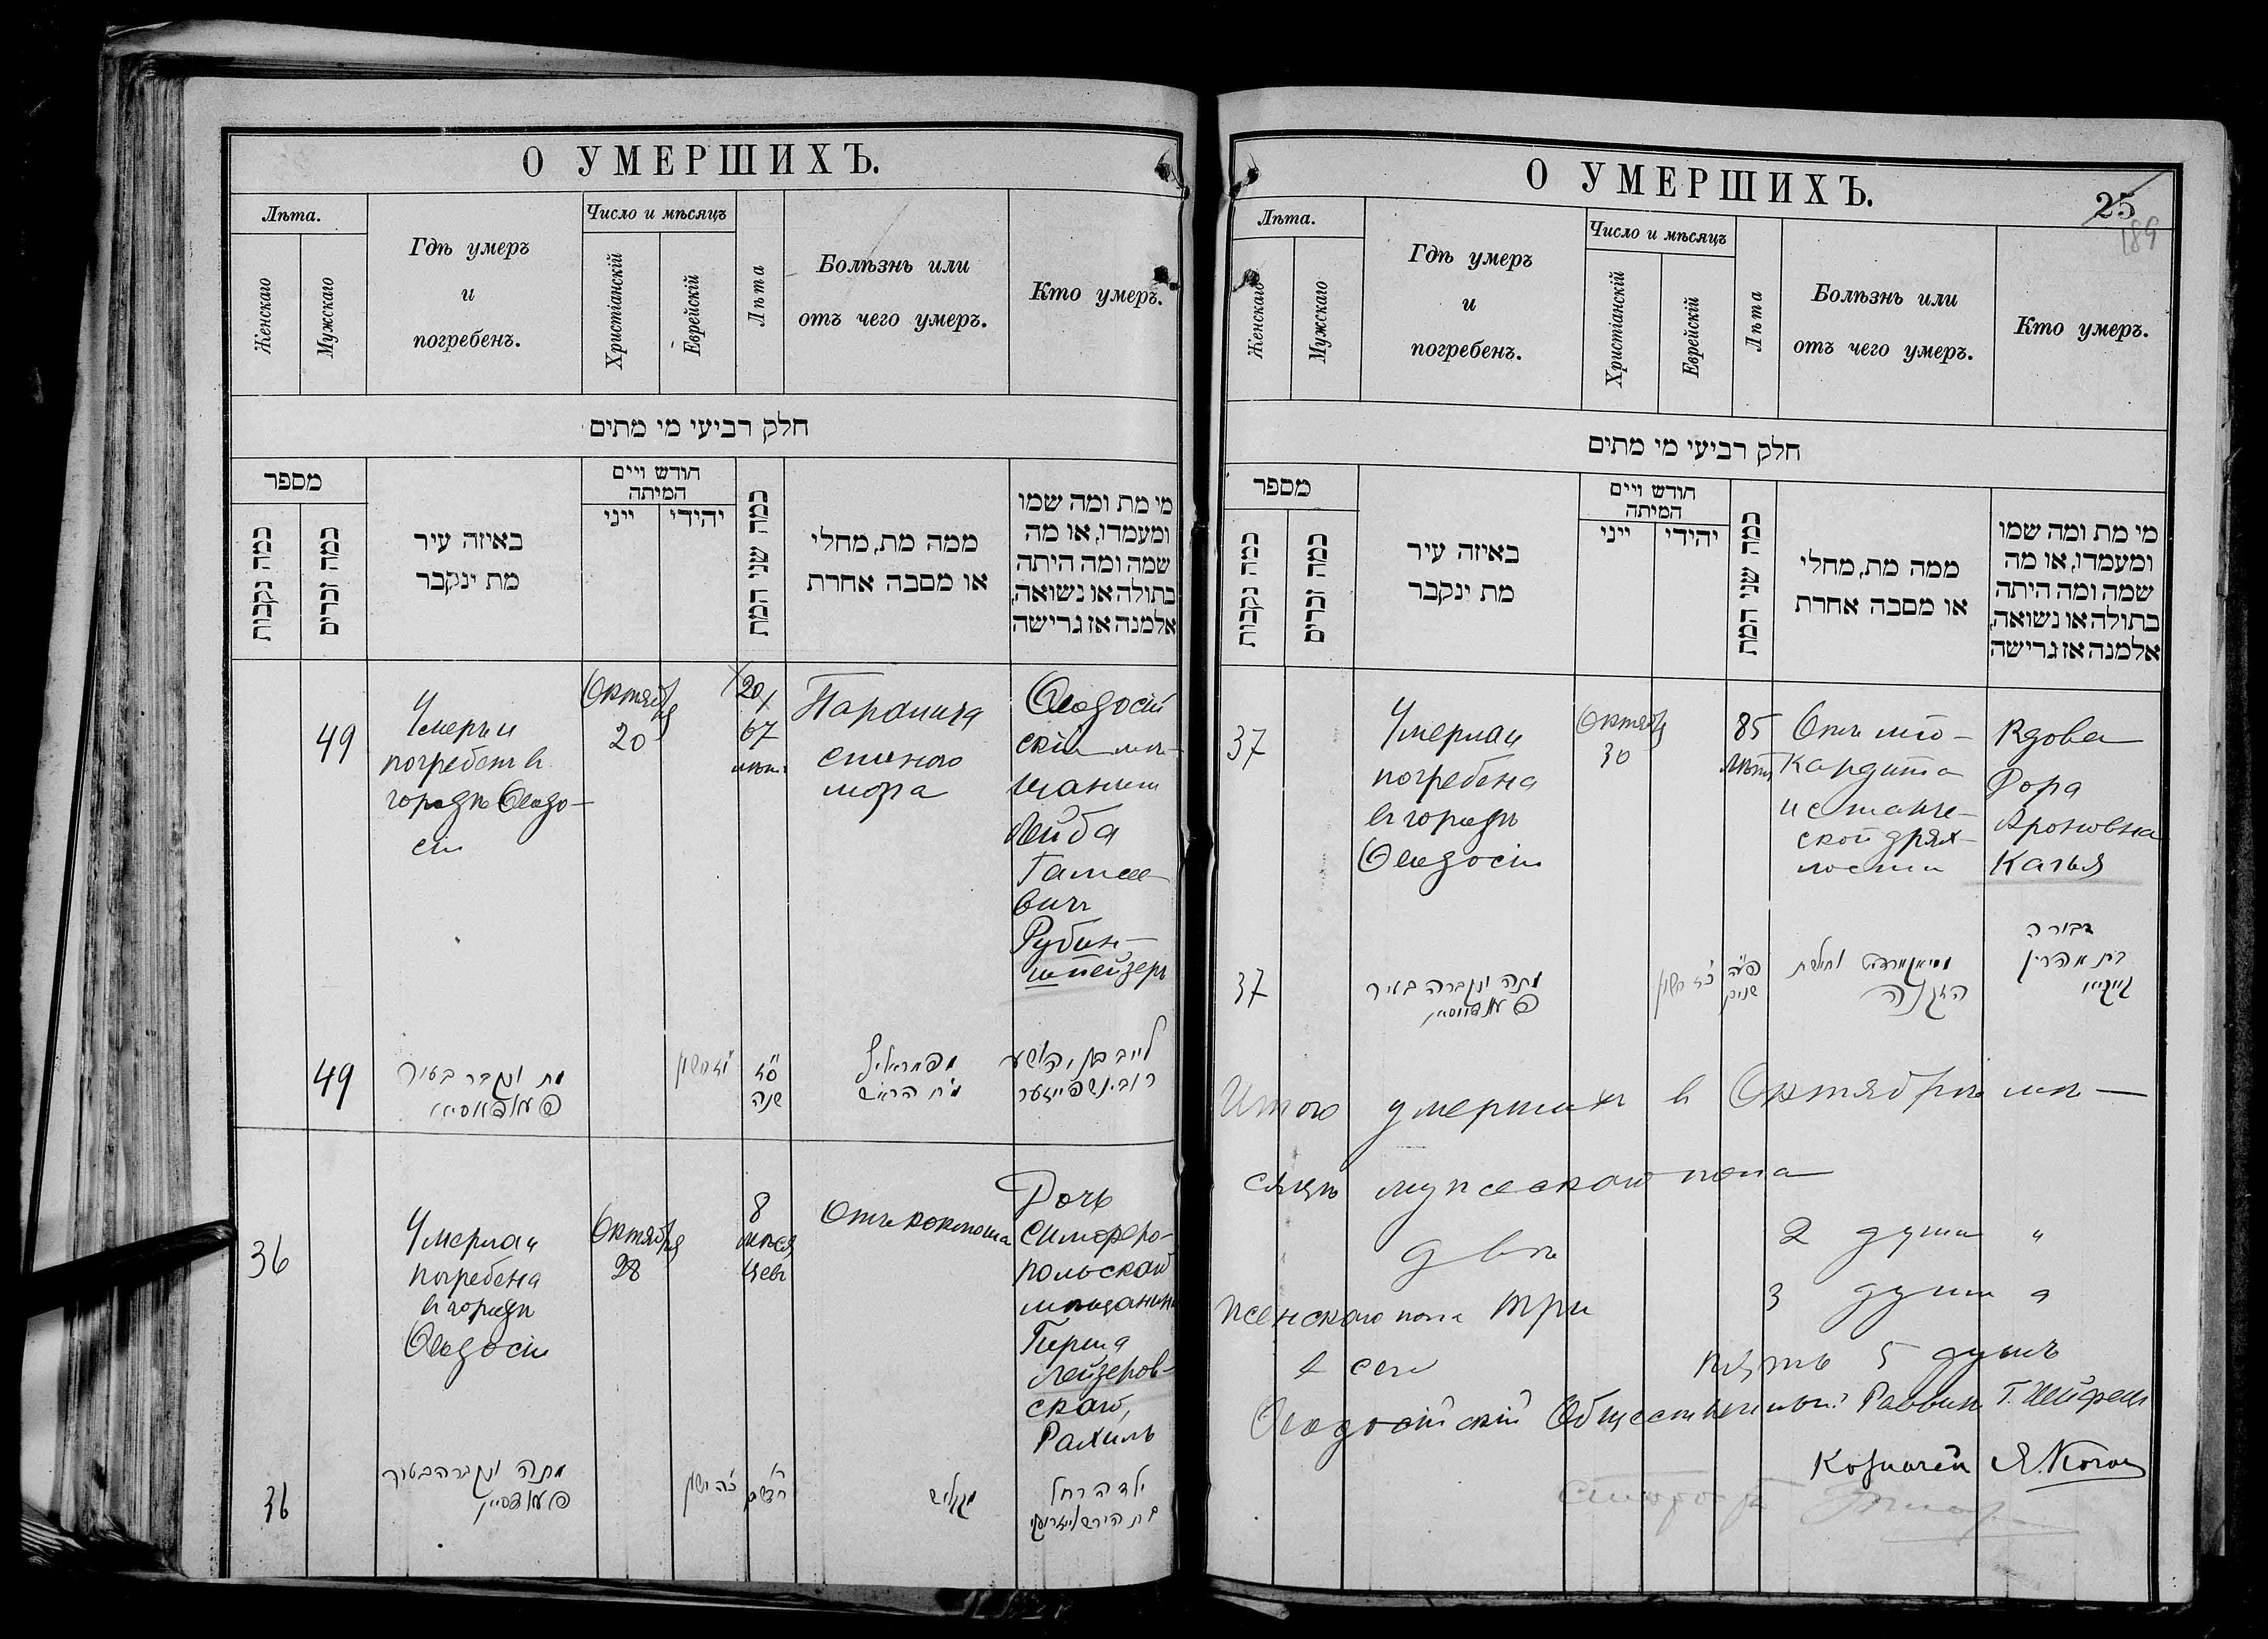 О УМЕРШИХЪ.
Лѣта.
Женскаго
Мужскаго
Гдѣ умеръ
и
погребенъ.
Число и мѣсяцъ
Христіанскій
Еврейскій
Лѣта
Болѣзнь или
отъ чего умеръ.
Кто умеръ.
חלק רביעי מי מתים
מספר
כמה נקבות
כמה זכרים
באיזה עיר
מת ינקבר
חודש ויים
המיתה
ייני
יהודי
כמה שני המת
ממה מת, מחלי
או מסבה אחרת
מי מת ומה שמו
ומעמדו, או מה
שמה ומה היתה
בתולה או נשואה,
אלמנה אז גרישה
49
Умеръ и
погребенъ въ
городѣ Ѳеодо-
сіи
Октября
20
67
лѣтъ
Параличъ
спиного
мозга
Ѳеодосій
скій мѣ-
щанинъ
Лейба
Рубин-
шпейзеръ
49
מת ונקבר בעיר
פעאדאסיי
סז
שנה
מח הראש
לייב בן יהושע
רובינשפייזער
36
Умерла и
погребена
въ городѣ
Ѳеодосіи
Октября
28
8
мѣся
цевъ
Отъ коклюша
Дочь
симферо-
польскаго
мѣщанина
Герша
Лейзеров-
скаго,
Рахиль
36
מתה ונקברה בעיר
פעאדסיי
ילדה רחל
בת הירש לייזרווסקי
О УМЕРШИХЪ.
25
189
Лѣта.
Женскаго
Мужскаго
Гдѣ умеръ
и
погребенъ.
Число и мѣсяцъ
Христіанскій
Еврейскій
Лѣта
Болѣзнь или
отъ чего умеръ.
Кто умеръ.
חלק רביעי מי מתים
מספר
כמה נקבות
כמה זכרים
באיזה עיר
מת ינקבר
חודש ויים
המיתה
ייני
יהודי
כמה שני המת
ממה מת, מחלי
או מסבה אחרת
מי מת ומה שמו
ומעמדו, או מה
שמה ומה היתה
בתולה או נשואה,
אלמנה אז גרישה
37
Умерла и
погребена
въ городѣ
Ѳеодосіи
Октября
30
85
лѣтъ
Отъ міо-
кардита
и старче-
ской дрях-
лости
Вдова
Дора
Ароновна
37
מתה ונקברה בעיר
פעאדאסיי
פ״ה
שנים
הזקנה
דבורה
בת אהרון
Итого умершихъ въ Октябрѣ мѣ-
сяцѣ мужескаго пола
двѣ 2 души "
женскаго пола три 3 души "
А всего пять 5 душъ
Ѳеодосійскій Общественный Раввинъ
Казначей Я. Коган